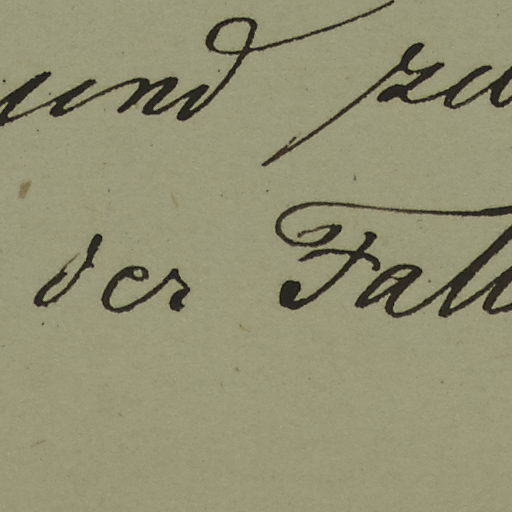 und zu
der Fall